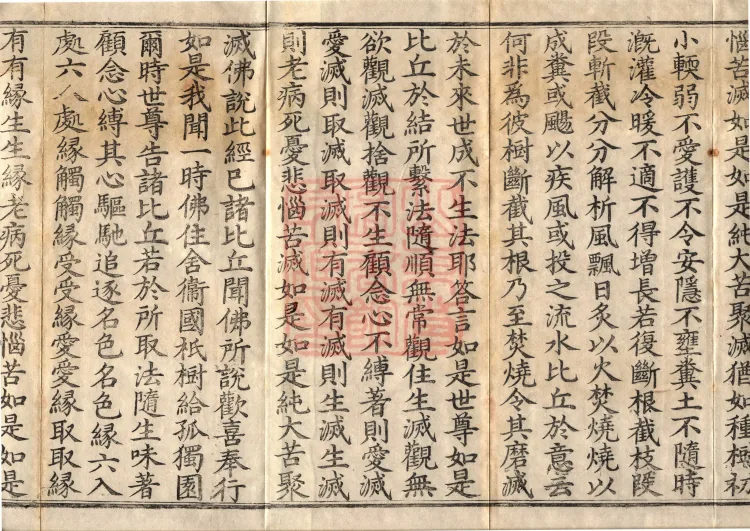 惱苦滅如是如是純大苦聚滅猶如種樹初
小軟弱不愛護不令安隱不壅糞土不隨時
溉灌冷暖不適不得增長若復斷根截枝段
段斬截分分解析風飄日炙以火焚燒燒以
成糞或颺以疾風或投之流水比丘於意云
何非為彼樹斷截其根乃至焚燒令其磨滅
於未來世成不生法耶答言如是世尊如是
比丘於結所繫法隨順無常觀住生滅觀無
欲觀滅觀捨觀不生顧念心不縛著則愛滅
愛滅則取滅取滅則有滅有滅則生滅生滅
則老病死憂悲惱苦滅如是如是純大苦聚
滅佛說此經已諸比丘聞佛所說歡喜奉行
如是我聞一時佛住舍衞國祇樹給孤獨園
爾時世尊告諸比丘若於所取法隨生味著
顧念心縛其心驅馳追逐名色名色緣六入
處六入處緣觸觸緣受受緣愛愛緣取取緣
有有緣生生緣老病死憂悲惱苦如是如是